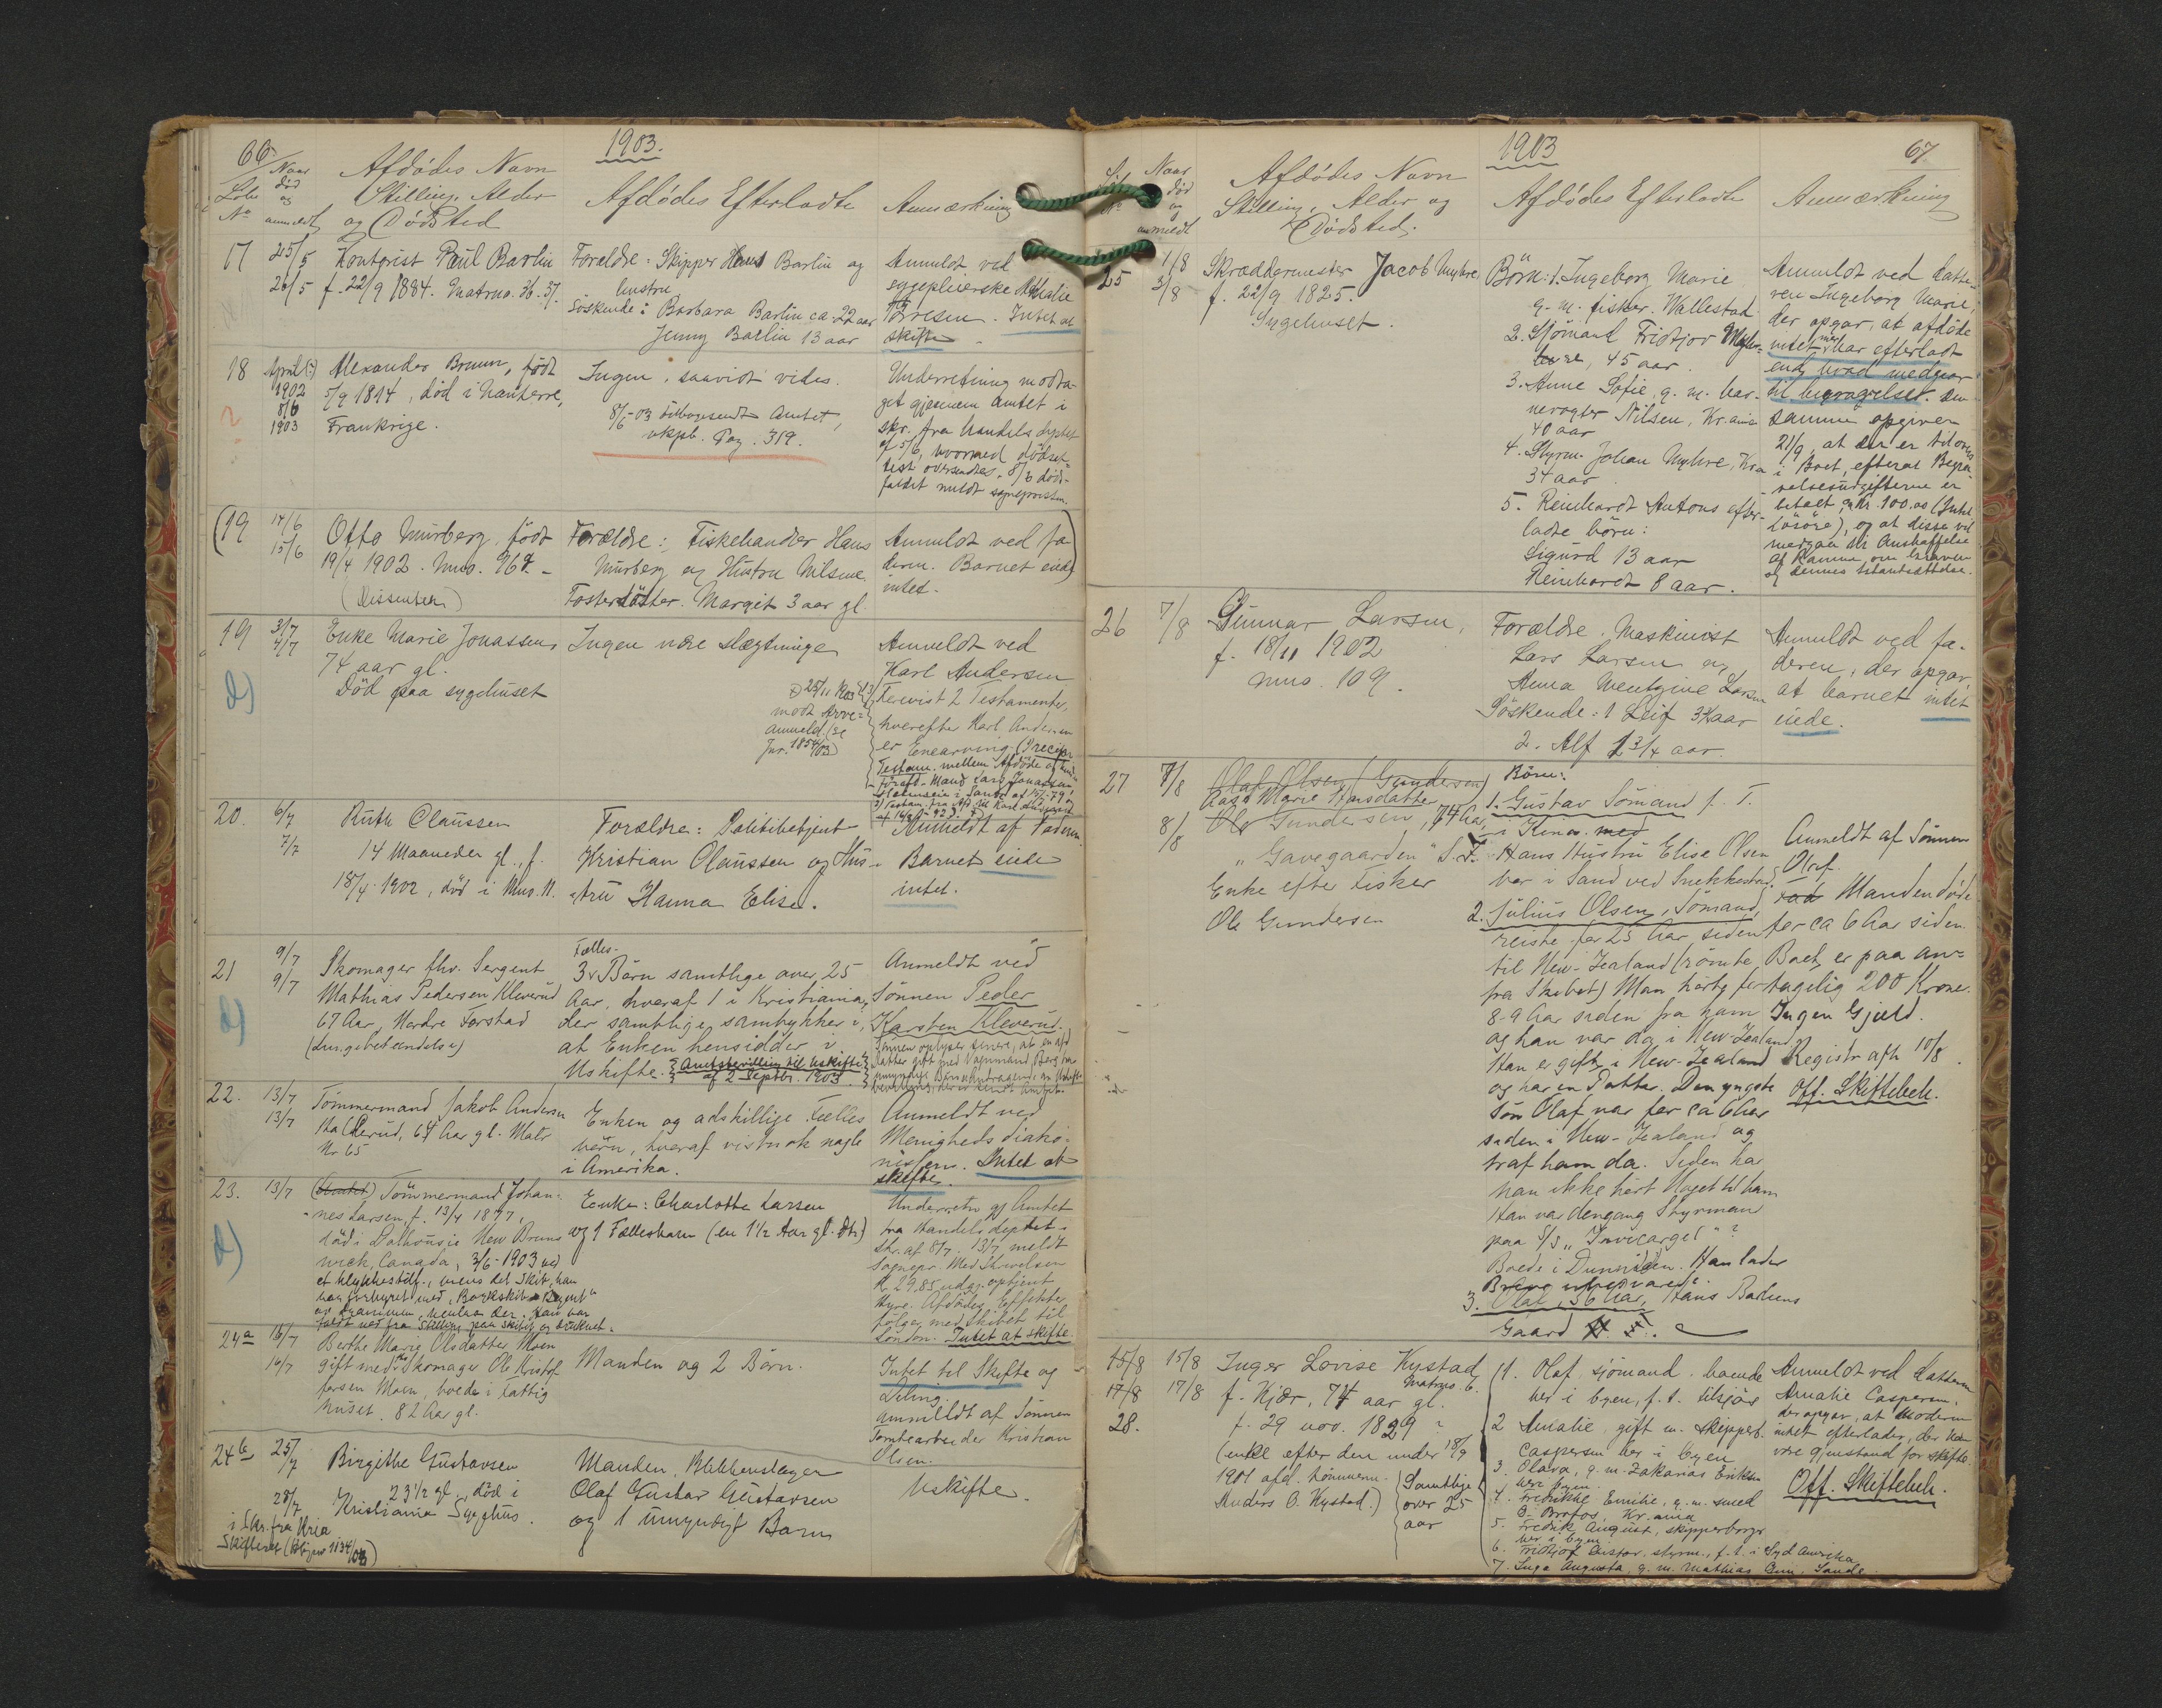 66.
1903.
Løbe No
Naar død og anmeldt
Afdødes Navn
Stilling, Alder
og Dødsted
Afdødes Efterladte
Anmærkning
17
25/5
26/5
Kontorist Paul Barlin
f. 22/9 1884. Matrno. 36.37.
Forældre: Skipper Hans Barlin og
hustru
Søskende: Barbara Barlin ca. 22 aar
Jenny Barlin 13 aar
Anmeldt ved
sygepleierske
Torresen. Intet at
skifte
18
April (?)
1902
8/6
1903
Alexander Bruun, født
5/9 1814, død i Nanterre,
Frankrige.
Ingen, saavidt vides.
8/6-03 tilbagesendt Amtet,
vkpb. Pag. 319.
Underretning modta-
get gjennem Amtet i
skr. fra Handelsdeptet
af 5/6, hvormed dødsat-
test oversendtes. 8/6 døds-
faldet meldt sogneprosten.
(19
14/6
15/6
Otto Murberg, født
19/4 1902. Mno. 96
(Dissenter)
Forældre: Fiskehandler Hans
Murberg og Hustru Nilsine.
Fostersøster. Margit 3 aar gl
Anmeldt ved fa-
deren. Barnet eied)
intet.
19
3/7
4/7
Enke Marie Jonassen,
74 aar gl.
Død paa sygehuset
Ingen nære slægtninge
25/11 1903
modt Arve-
anmeld. (se
Jnr. 1854/03)
Anmeldt ved
Karl Andersen
Forevist 2 Testamenter,
hvorefter Karl Andersen
er Enearving
Testam. mellem Afdøde og
20.
6/7
7/7
Ruth Claussen
14 Maaneder gl., f.
18/4 1902, død i Mno. 11.
Forældre: Politibetjent
Kristian Claussen og Hus-
tru Hanna Elise.
Anmeldt af Faderen.
Barnet eiede
intet.
21
9/7
9/7
Skomager fhv. Sergent
Mathias Pedersen Kleverud
67 Aar, Nordre Torstad
(Lungebetændelse)
Fælles-
3 Børn samtlige over 25
Aar, hvoraf 1 i Kristiania,
der samtlige samtykker i,
at Enken hensidder i
Uskifte. Amtsbevilling til Uskifte
af 2 Septbr. 1903.
Anmeldt ved
Sønnen Peder
Karsten Kleverud.
22.
13/7
13/7
Tømmermand Jakob Andersen
64 Aar gl. Matr
Nr 65
Enken og adskillige Fælles
børn, hvoraf vistnok nogle
i Amerika.
Anmeldt ved
Menigheds diako-
nissen. Intet at
skifte.
23.
13/7
Tømmermand Johan-
nes Larsen, f. 13/4 1877,
død i Dalhousie New Bruns
wick, Canada, 3/6-1903 ved
et Ulykkestilf.,
Enke: Charlotte Larsen
og 1 Fællesbarn (en 1½ Aar gl. Dtr)
Underretn gj Amtet
fra Handelsdeptet i
Skr. af 8/7. 13/7 meldt
Sognepr. Med Skrivelsen
K. 29,85
Hyre. Afdødes Effekter
følger med Skibet til
London. Intet at skifte.
24a
16/7
16/7
Berthe Marie Olsdatter Moen
gift med Skomager Ole Kristof-
fersen Moen, boede i Fattig
huset. 82 Aar gl.
Manden og 2 Børn.
Intet til Skifte og
Deling.
Anmeldt af Sønnen
Tomtearbeider Kristian
Olsen.
24b
25/7
28/7
Birgithe Gustavsen
23½ gl., død i
Kristiania Sygehus.
i Skr. fra Kria
Skifteret (1134/03)
Manden, Blikkenslager
Olaf Gustav Gustavsen
og 1 umyndigt Barn
Uskifte.
1903
67.
Naar død og anmeldt
Afdødes Navn
Stilling, Alder og
Dødsted.
Afdødes Efterladte
Anmærkning
25
1/8
3/8
Skræddermester Jacob Myhre,
f. 22/9 1825.
Sygehuset.
Børn: 1. Ingeborg Marie
g. m. fisker Wallestad
2. Sjømand Fridtjov
45 aar.
3. Anne Sofie, g. m. bar-
Nilsen, Kr.ania
40 aar
4. Styrm. Johan Myhre, Kra
34 aar
5. Reinhardt Antons efter-
ladte børn:
Sigurd 13 aar
Reinhardt 8 aar.
Anmeldt ved datte-
ren Ingeborg Marie,
der opgav, at afdøde
intet mer har efterladt
end hvad medgaar
til begravelsen. Den-
samme opgiver
21/9, at der er tilovers
i Boet, efterat Begra-
velsesudgifterne er
betalt, Kr. 100.00 (Intet
løsøre), og at disse vil
medgaa til Anskaffelse
af Ramme om Graven
og dennes Istandsættelse.
26
7/8
Gunnar Larsen,
f. 18/11 1902
mno. 109.
Forældre. Maskinist
Lars Larsen og
Anna Wentzine Larsen
Søskende: 1 Leif 3¼ aar
2. Alf 1¾ aar
Anmeldt ved fa-
deren, der opgav,
at barnet intet
eiede.
27
7/8
8/8
Olaf Olsen (Gundersen)
Aase Marie Hansdatter
Ole Gundersen, 74 Aar,
„Gavegaarden"
Enke efter Fisker
Ole Gundersen
Børn:
1. Gustav Sømand f. T.
i Kina. med
Hans Hustru Elise Olsen
bor i Sand ved Snekkestad.
2. Julius Olsen, Sømand,
reiste for 25 Aar siden
til New-Zealand (rømte
fra Skibet) Man hørte for
8-9 Aar siden fra ham
og han var da i New-Zealand
Han er gift i New-Zealand
og har en Datter. Den yngste
Søn Olaf var for ca 6 Aar
siden i New-Zealand og
traf ham da. Siden har
man ikke hørt Noget til ham
Han var dengang Styrmand
paa S/S „Invicargel"?
Boede i Dunniden. Han lader
Breve ubesvaret.
3. Olaf, 36 Aar, Hans Barkens
Gaard
Anmeldt af Sønnen
Olaf.
Manden døde
for ca 6 Aar siden.
Boet er paa an-
tagelig 200 Kroner.
Ingen Gjæld.
Registr afh 10/8.
Off. Skiftebeh.
15/8
17/8
28.
15/8
17/8
Inger Lovise Kystad
Matrno. 6.
f. Kjær, 74 aar gl.
f. 29 nov. 1829
(enke efter den under 18/9
1901 afd. tømmerm.
Anders O. Kystad.)
Samtlige
over 25
aar
1. Olaf, sjømand. boende
her i byen, f. t. tilsjøs
2 Amalie, gift m. skipperb.
Caspersen her i byen
3. Olava, g. m. Zakarias Eriksen
her i byen
4. Fredrikke Emilie, g. m. smed
O. Brofos, Kr.ania
5. Fredrik August, skipperborger
her i byen
6. Fridtjof Gustav, styrm., f. t. i Syd Amerika
7. Inga Augusta, g. m. Mathias Bruu, Sande.
Anmeldt ved datteren
Amalie Caspersen,
der opgav, at Moderen
intet efterlader, der kan
være gjenstand for skifte.
Off. Skiftebeh.